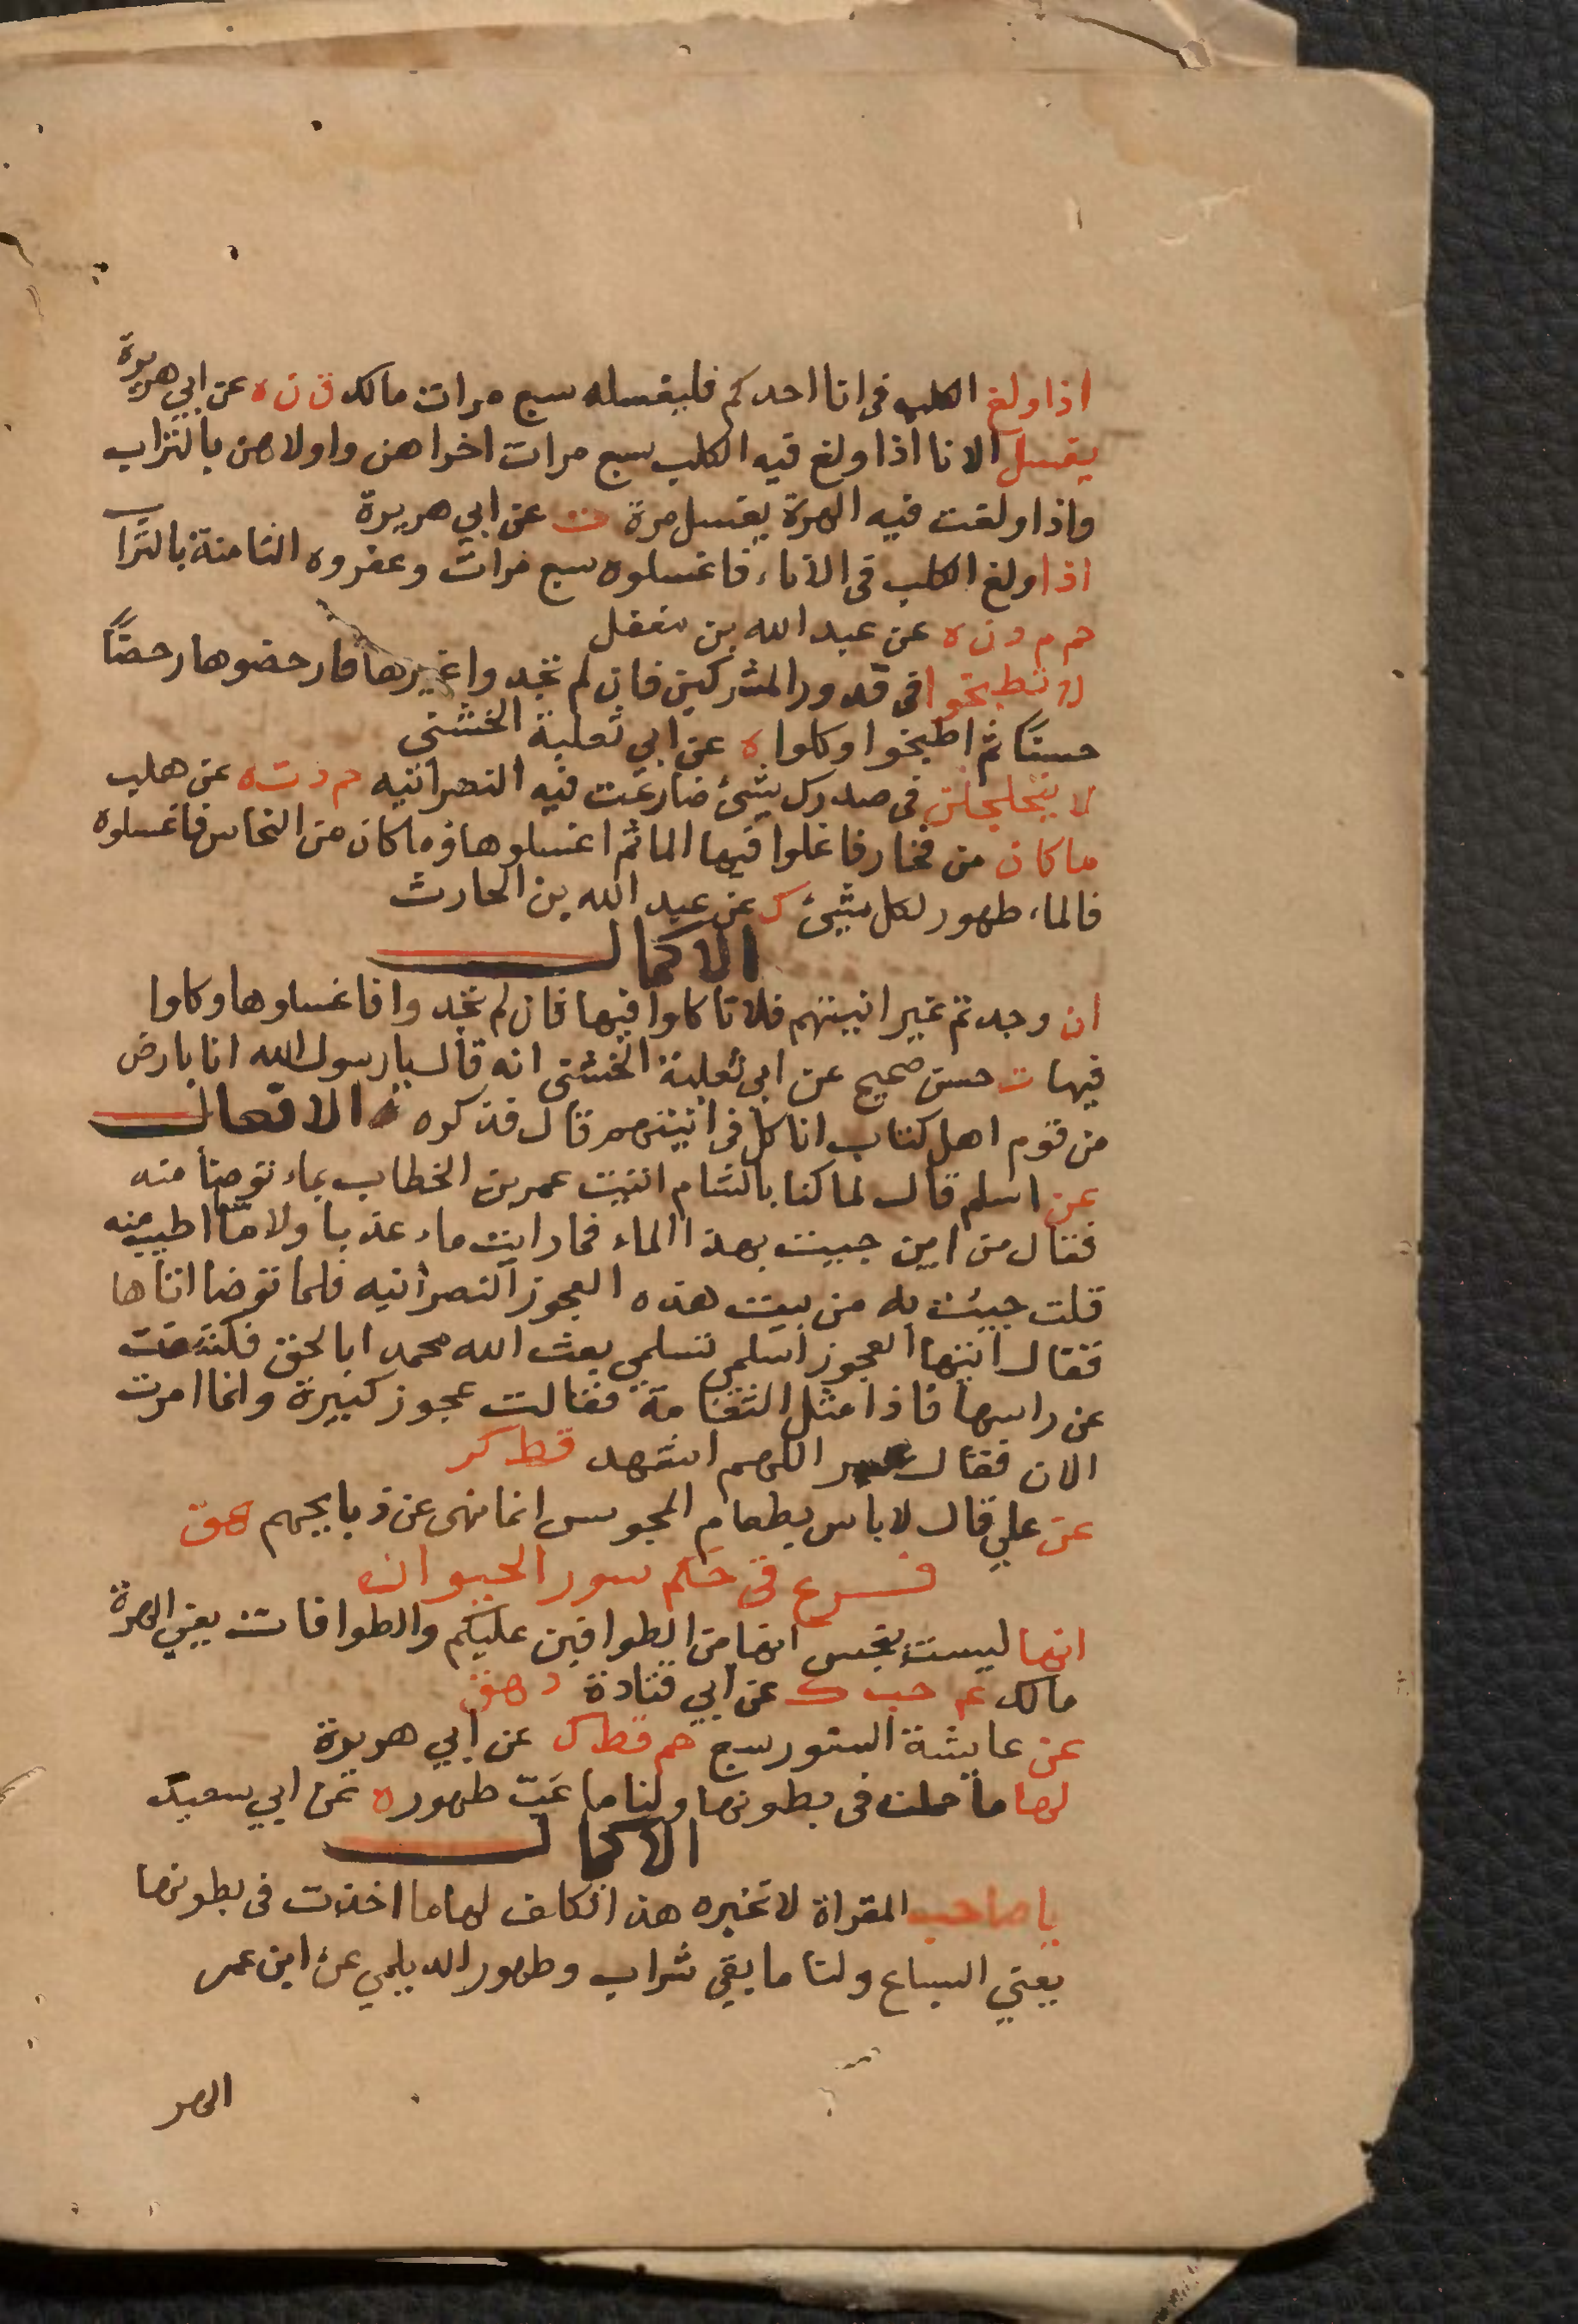 اذا ولغ الكلب فى انا احدكم فليغسله سبع مرات مالك ق ن ه عن ابي هريرة
يغسل الانا اذا ولغ فيه الكلب سبع مرات اخراهن واولاهن بالتراب
واذا ولغت فيه الهرة يغسل مرة ت عن ابي هريرة
اذا ولغ الكلب فى الاناء فاغسلوه سبع مرات وعفروه الثامنة بالتراب
حم م د ن ه عن عبد الله بن مغفل
لا تطبخوا فى قدور المشركين فان لم تجدوا غيرها فارحضوها رحضًا
حسنًا ثم اطبخوا وكلوا ه عن ابي ثعلبة الخشني
لا يتحلجلن فى صدرك شئ ضارعت فيه النصرانيه حم د ت ه عن هلب
ما كان من فخار فاغلوا فيها الما ثم اغسلوها وما كان من النحاس فاغسلوه
فالماء طهور لكل شئ ك عن عبد الله بن الحارث
الاكمال
ان وجدتم غير انيتهم فلا تاكلوا فيها فان لم تجدوا فاغسلوها وكلوا
فيها ت حسن صحيح عن ابي ثعلبة الخشني انه قال يا رسول الله انا بارض
من قوم اهل كتاب اناكل فى انيتهم قال فذكره الافعال
عن اسلم قال لما كنا بالشام اتيت عمر بن الخطاب بماء توضأ منه
فقال من اين جيت بهذا الماء فما رايت ماء عذبا ولا ما اطيب منه
قلت جيت به من بيت هذه العجوز النصرانيه فلما توضا اتاها
فقال ايتها العجوز اسلمي تسلمي بعث الله محمدا بالحق فكشفت
عن راسها فاذا مثل الثغامة فقالت عجوز كبيرة وانما امرت
الان فقال عمر اللهم اشهد قط كر
عن علي قال لا باس بطعام المجوس انما نهى عن ذبايحهم هق
فرع فى حكم سور الحيوان
انها ليست بنجس انها من الطوافين عليكم والطوافات يعني الهرة
مالك عم حب ك عن ابي قتادة د هق
عن عايشة السنور سبع حم قط ك عن ابي هريرة
لها ما حملت فى بطونها ولنا ما غبر طهور ه عن ابي سعيد
الاكمال
يا صاحب المقراة لا تخبره هذا تكلف لها ما اخذت فى بطونها
يعني السباع ولنا ما بقى شراب وطهور الديلمي عن ابن عمر
الهر